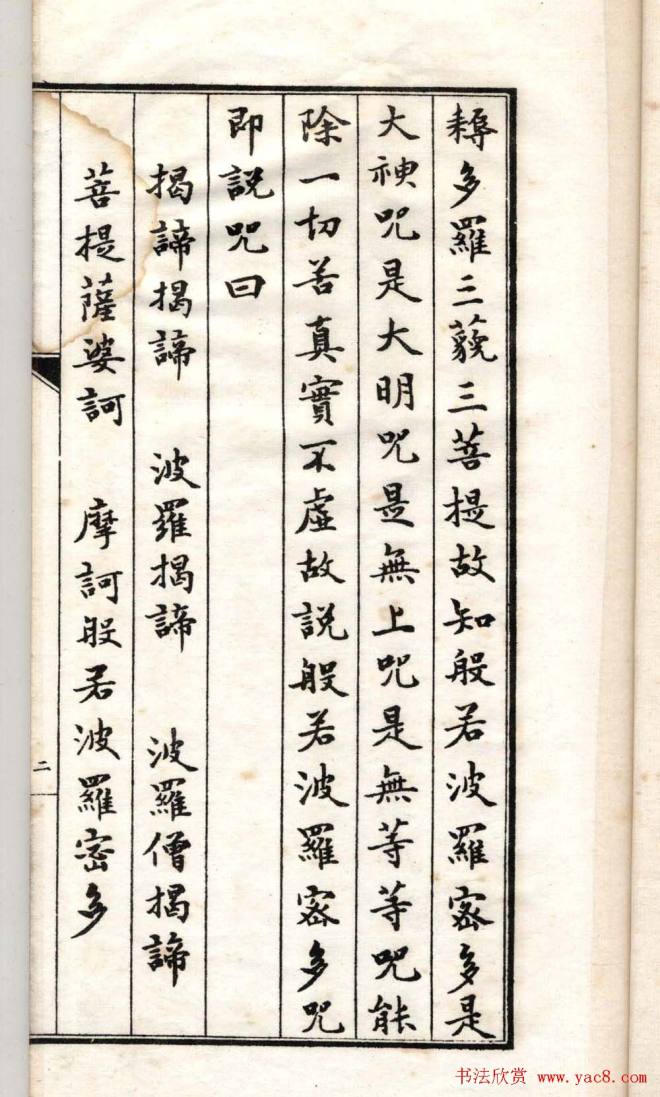 耨多羅三藐三菩提故知般若波羅密多是
大神咒是大明咒是無上咒是無等等咒能
除一切苦真實不虛故説般若波羅密多咒
即説咒曰
揭諦揭諦　波羅揭諦　波羅僧揭諦
菩提薩婆訶　摩訶般若波羅密多
二
书法欣赏 www.yac8.com